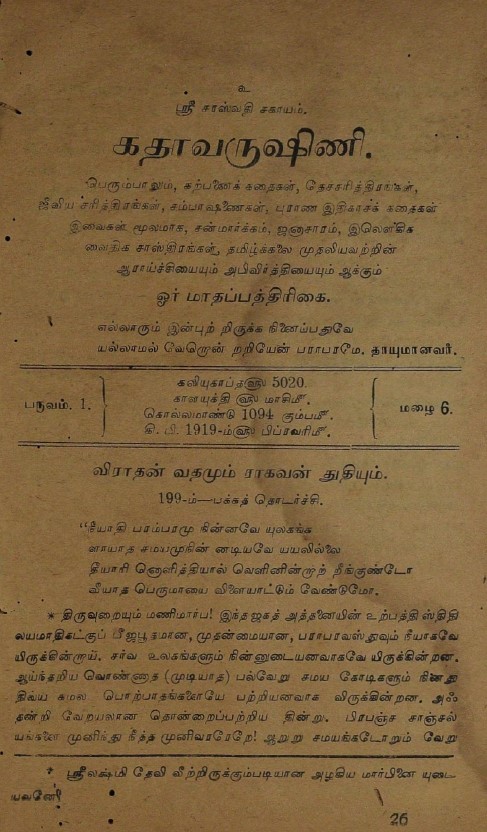 உ
ஸ்ரீ சாஸ்வதி சகாயம்.
கதாவருஷிணி.
பெரும்பாலும், கற்பனைக் கதைகள், தேசசரித்திரங்கள்,
ஜீவிய சரித்திரங்கள், சம்பாஷணைகள், புராண இதிகாசக் கதைகள்
இவைகள் மூலமாக, சன்மார்க்கம், ஜனாசாரம், இலௌகிக
வைதிக சாஸ்திரங்கள், தமிழ்க்கலை முதலியவற்றின்
ஆராய்ச்சியையும் அபிவிர்த்தியையும் ஆக்கும்
ஓர் மாதப்பத்திரிகை.
எல்லாரும் இன்புற் றிருக்க நினைப்பதுவே
யல்லாமல் வேறொன் றறியேன் பராபரமே. தாயுமானவர்.
பருவம். 1.
கலியுகாப்தம் 5020.
காளயுக்தி ௵ மாசிமீ.
கொல்லமாண்டு 1094 கும்பமீ.
கி. பி. 1919-ம்௵ பிப்ரவரிமீ.
மழை 6.
விராதன் வதமும் ராகவன் துதியும்.
199-ம்—பக்கத் தொடர்ச்சி.
“நீயாதி பரம்பரமு நின்னவே யுலகங்க
ளாயாத சமயமுநின் னடியவே யயலில்லை
தீயாரி னொளித்தியால் வெளிநின்றாற் றீங்குண்டோ
வீயாத பெருமாயை விளையாட்டும் வேண்டுமோ.
* திருவுறையும் மணிமார்ப! இந்தஜகத் அத்தனையின் உற்பத்தி ஸ்திதி
லயமாதிகட்குப் பீஜபூதமான, முதன்மையான, பராபரவஸ்துவும் நீயாகவே
யிருக்கின்றாய். சர்வ உலகங்களும் நின்னுடையனவாகவே யிருக்கின்றன.
ஆய்ந்தறிய வொண்ணாத (முடியாத) பல்வேறு சமய கோடிகளும் நினது
திவ்ய கமல பொற்பாதங்களையே பற்றியனவாக விருக்கின்றன. அஃ
தன்றி வேறயலான தொன்றைப்பற்றிய தின்று. பிரபஞ்ச சாஞ்சல்
யங்களை முனிந்து நீத்த முனிவரரேறே! ஆறு சமயங்கடோறும் வேறு
* ஸ்ரீலஷ்மி தேவி வீற்றிருக்கும்படியான அழகிய மார்பினை யுடை
யவனே!
26